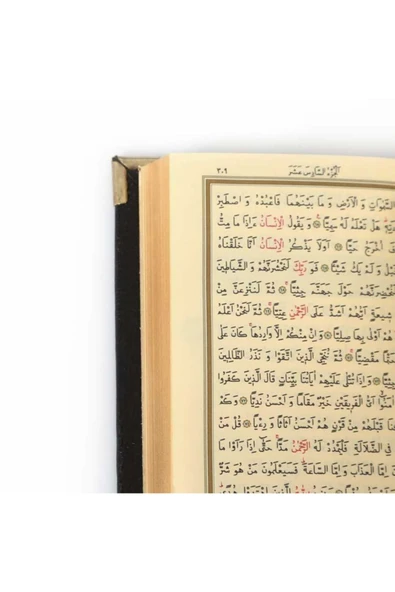 الْجُزْءُ السَّادِسَ عَشَرَ
٣٠٩
السَّمٰوَاتِ وَالْاَرْضِ وَمَا بَيْنَهُمَا فَاعْبُدْهُ وَاصْطَبِرْ
هَلْ تَعْلَمُ لَهُ سَمِيًّا ۞ وَيَقُولُ الْاِنْسَانُ ءَاِذَا مَا مِتُّ
اُخْرَجُ حَيًّا ۞ اَوَلَا يَذْكُرُ الْاِنْسَانُ اَنَّا خَلَقْنَاهُ
قَبْلُ وَلَمْ يَكُ شَيْئًا ۞ فَوَرَبِّكَ لَنَحْشُرَنَّهُمْ وَالشَّيَاطِينَ
لَنُحْضِرَنَّهُمْ حَوْلَ جَهَنَّمَ جِثِيًّا ۞ ثُمَّ لَنَنْزِعَنَّ مِنْ
شِيعَةٍ اَيُّهُمْ اَشَدُّ عَلَى الرَّحْمٰنِ عِتِيًّا ۞ ثُمَّ لَنَحْنُ اَعْلَمُ
هُمْ اَوْلٰى بِهَا صِلِيًّا ۞ وَاِنْ مِنْكُمْ اِلَّا وَارِدُهَا كَانَ عَلٰى
حَتْمًا مَقْضِيًّا ۞ ثُمَّ نُنَجِّي الَّذِينَ اتَّقَوْا وَنَذَرُ الظَّالِمِينَ
جِثِيًّا ۞ وَاِذَا تُتْلٰى عَلَيْهِمْ اٰيَاتُنَا بَيِّنَاتٍ قَالَ الَّذِينَ كَفَرُوا
اٰمَنُوا اَيُّ الْفَرِيقَيْنِ خَيْرٌ مَقَامًا وَاَحْسَنُ نَدِيًّا ۞ وَكَمْ
قَبْلَهُمْ مِنْ قَرْنٍ هُمْ اَحْسَنُ اَثَاثًا وَرِءْيًا ۞ قُلْ مَنْ
فِي الضَّلَالَةِ فَلْيَمْدُدْ لَهُ الرَّحْمٰنُ مَدًّا حَتّٰى اِذَا رَاَوْا مَا
اِمَّا الْعَذَابَ وَاِمَّا السَّاعَةَ فَسَيَعْلَمُونَ مَنْ هُوَ شَرٌّ
الَّذِينَ اهْتَدَوْا هُدًى